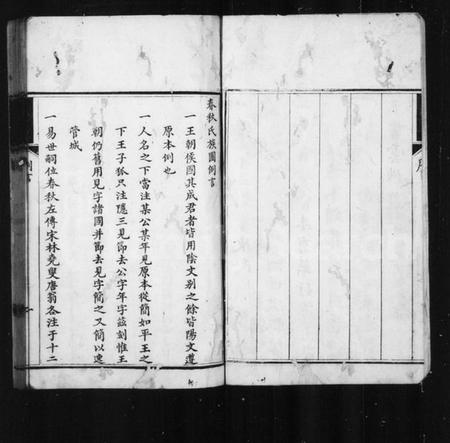 春秋氏族圖例言
一王朝侯國其成君者皆用陰文别之餘皆陽文遵
原本例也
一人名之下當注某公某年見原本從簡如平王之
下王子狐只注隱三見節去公字年字茲刻惟王
朝仍舊用見字諸國并節去見字簡之又簡以速
管城
一易世嗣位春秋左傳宋林堯叟唐翁各注于十二